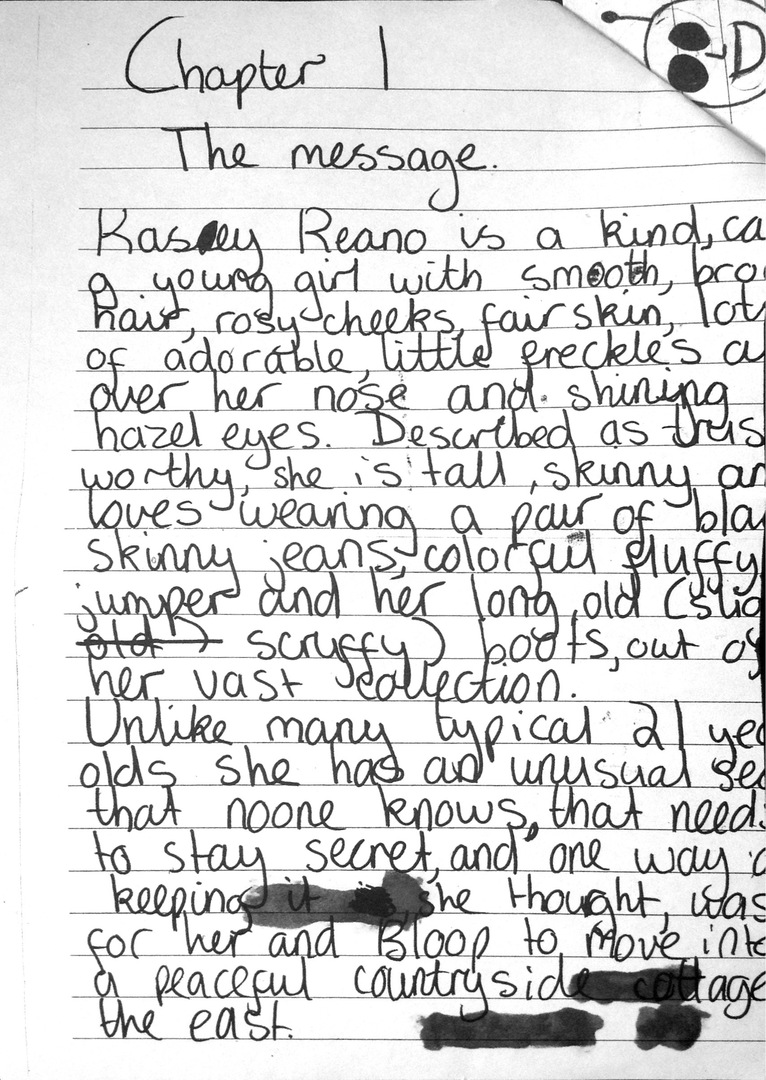 Chapter 1
The message.
Kasey Reano is a kind, ca
a young girl with smooth, bro
hair, rosy cheeks, fair skin, lot
of adorable, little freckles a
over her nose and shining
hazel eyes. Described as trus
worthy, she is tall, skinny an
loves wearing a pair of bla
skinny jeans, colorful fluffy
jumper and her long, old (slig
old) scruffy) boots, out of
her vast collection.
Unlike many typical 21 yea
olds she has an unusual sec
that noone knows, that need
to stay secret, and one way o
keeping it she thought, was
for her and Bloop to move into
a peaceful countryside cottage
the east.